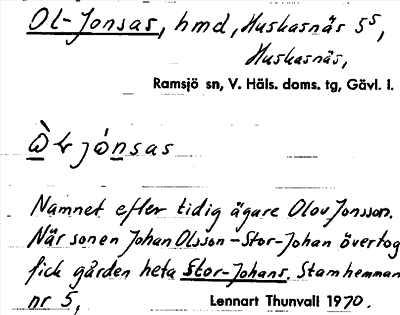 Ol-Jonsas, hmd, Huskasnäs 5⁵,
Huskasnäs,
Ramsjö sn, V. Häls. doms. tg, Gävl. l.
jónsas
Namnet efter tidig ägare Olov Jonsson.
När sonen Johan Olsson - Stor-Johan övertog
fick gården heta Stor-Johans. Stamhemman
nr 5,
Lennart Thunvall 1970.